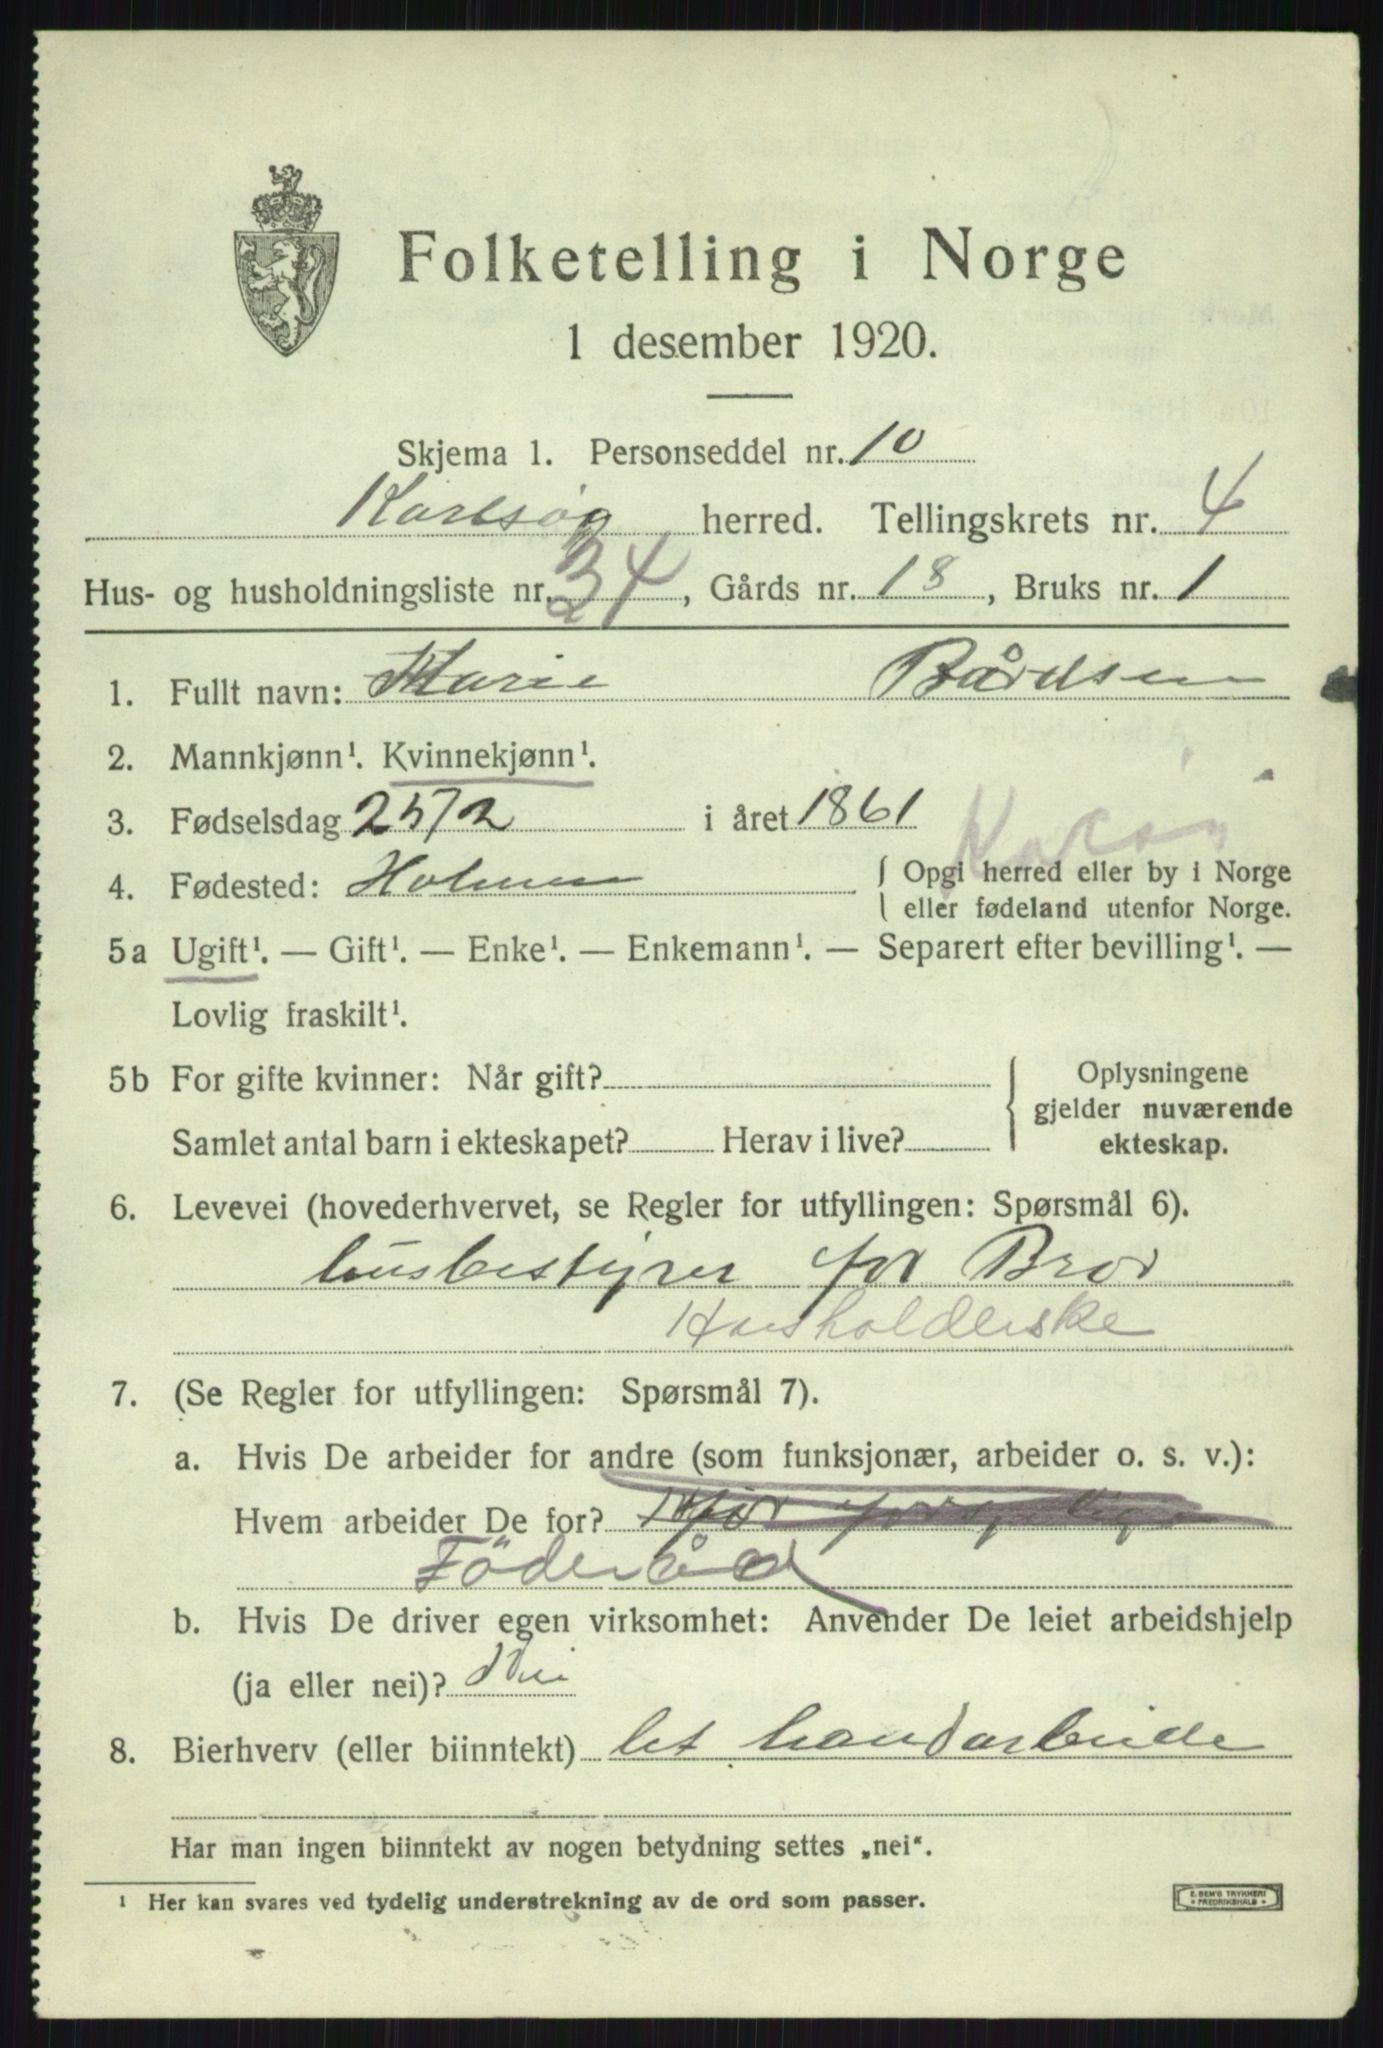 Folketelling i Norge
1 desember 1920.
Skjema 1. Personseddel nr. 10
Karlsøy herred. Tellingskrets nr. 4
Hus- og husholdningsliste nr. 34, Gårds nr. 18, Bruks nr. 1
1. Fullt navn: Marie Bårdsen
2. Mannkjønn¹. Kvinnekjønn¹.
3. Fødselsdag 25/2 i året 1861
4. Fødested: Holmen { Opgi herred eller by i Norge
eller fødeland utenfor Norge.
5a Ugift¹. — Gift¹. — Enke¹. — Enkemann¹. — Separert efter bevilling¹. —
Lovlig fraskilt¹.
5b For gifte kvinner: Når gift?
Samlet antal barn i ekteskapet? Herav i live?
Oplysningene
gjelder nuværende
ekteskap.
6. Levevei (hovederhvervet, se Regler for utfyllingen: Spørsmål 6).
husbestyrer for Bror
Husholderske
7. (Se Regler for utfyllingen: Spørsmål 7).
a. Hvis De arbeider for andre (som funksjonær, arbeider o. s. v.):
Hvem arbeider De for?
Föderåd
b. Hvis De driver egen virksomhet: Anvender De leiet arbeidshjelp
(ja eller nei)? Nei
8. Bierhverv (eller biinntekt) let handarbeide
Har man ingen biinntekt av nogen betydning settes „nei“.
¹ Her kan svares ved tydelig understrekning av de ord som passer.
E. SEM'S TRYKKERI
FREDRIKSHALD